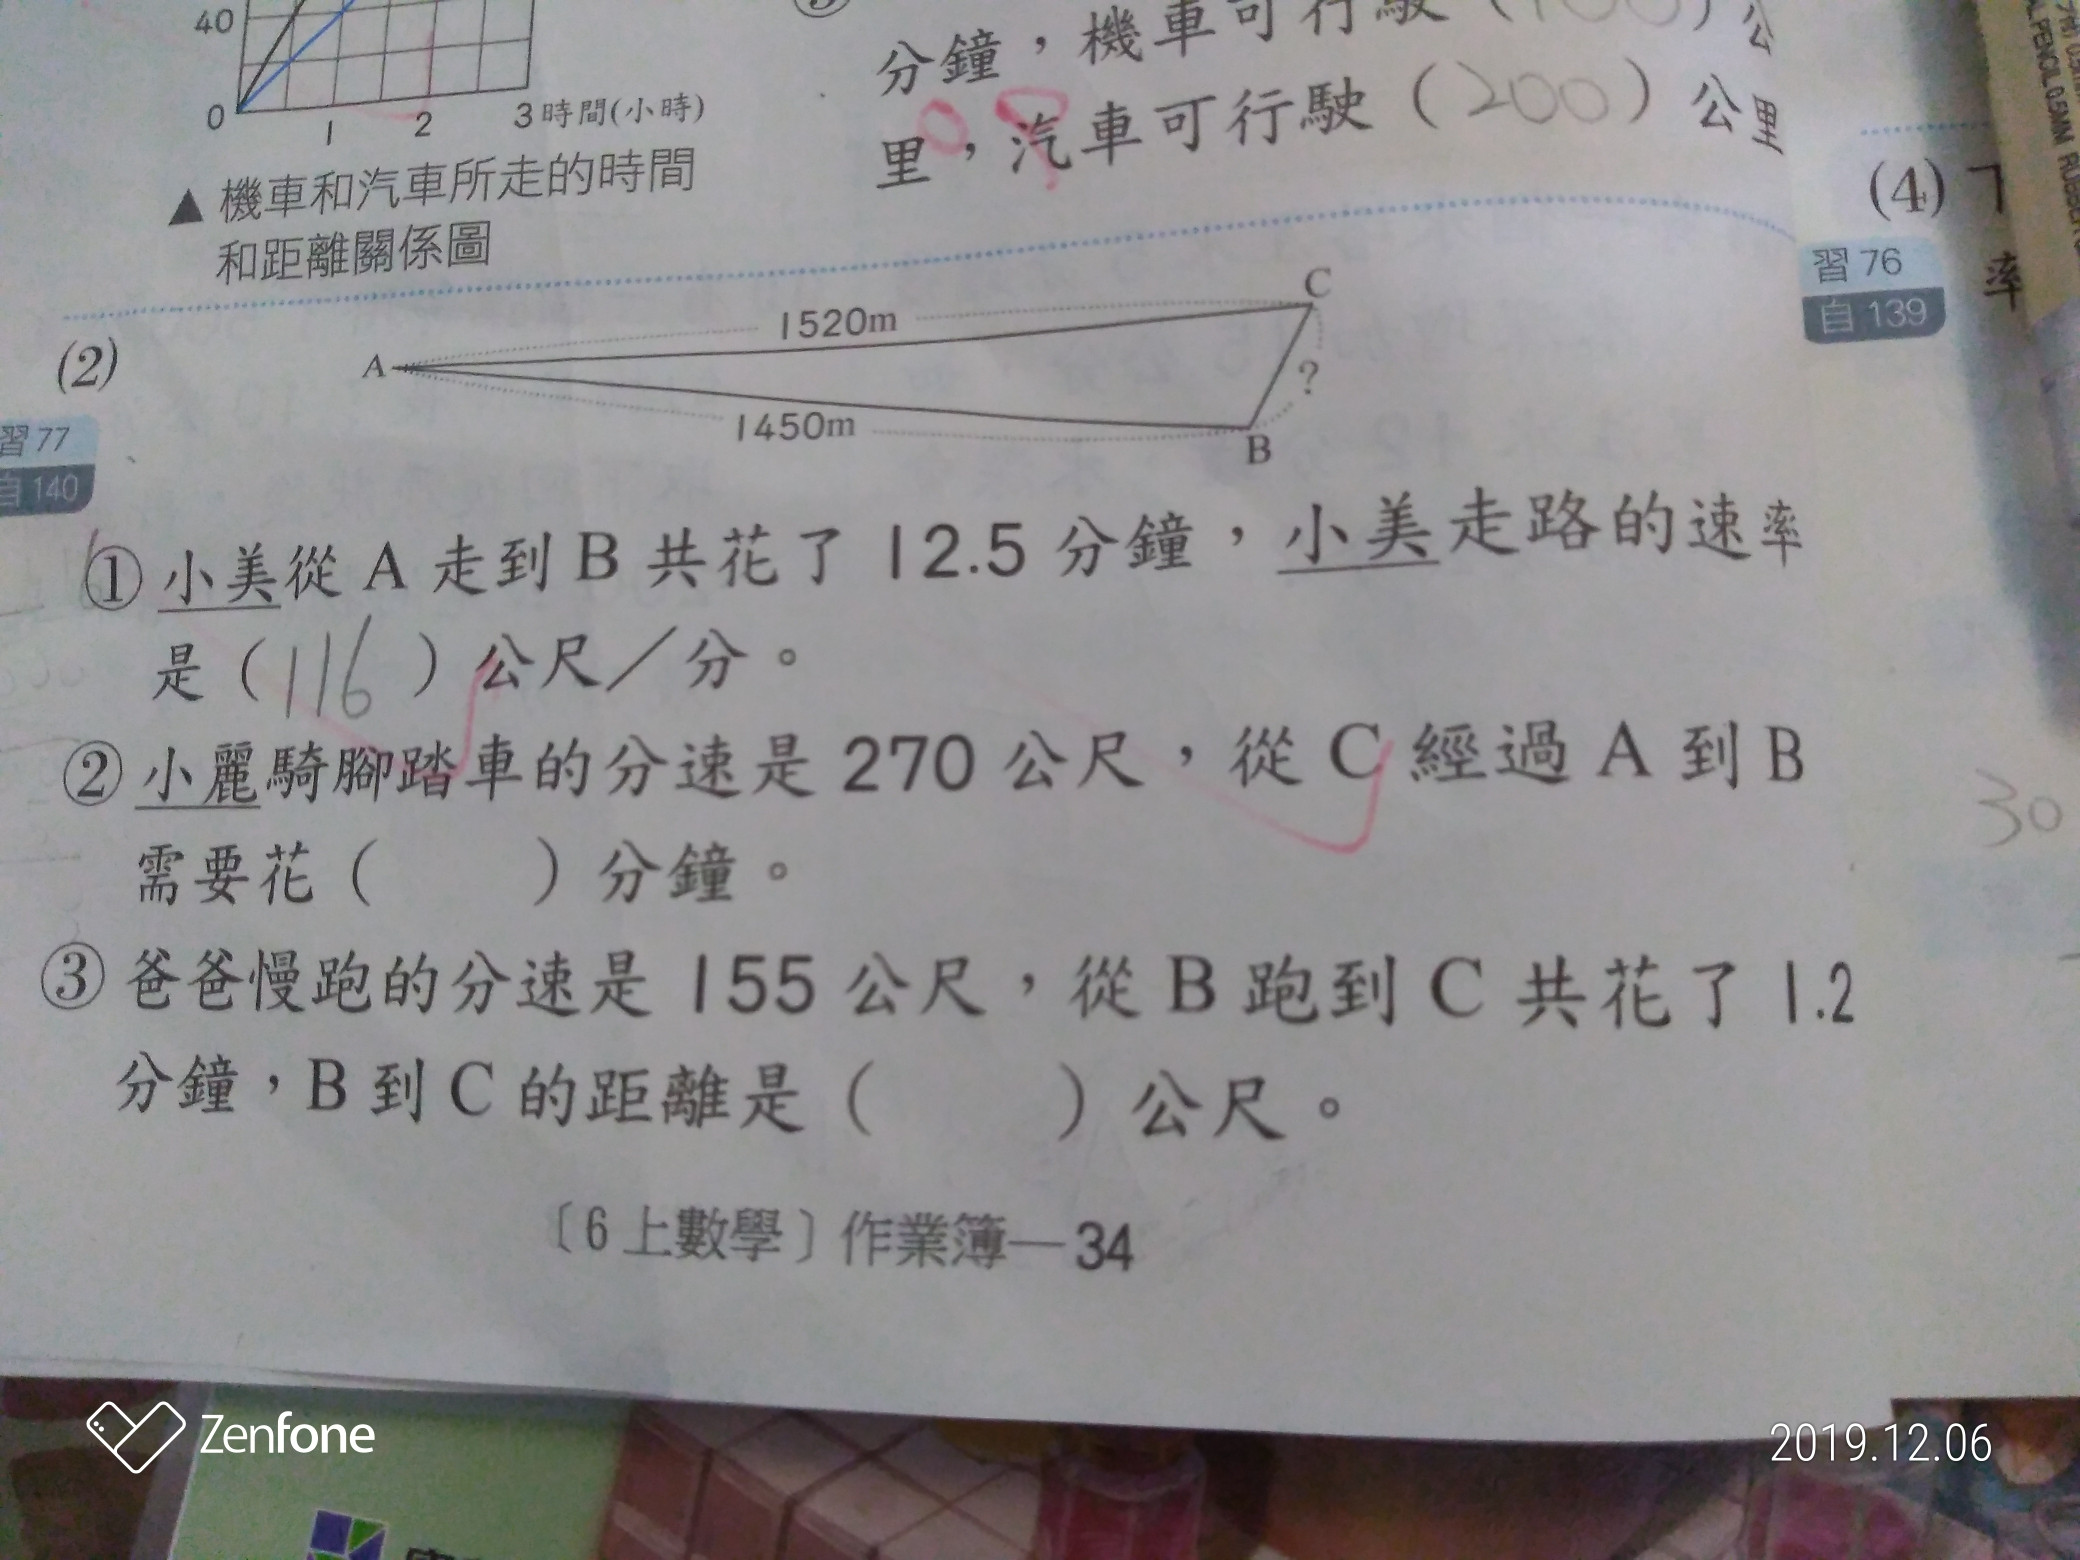 40
0
1
2
3時間(小時)
▲ 機車和汽車所走的時間
和距離關係圖
分鐘，機車可行駛(100)公
里，汽車可行駛(200)公里
(4)下
率
習76
自139
(2)
習77
自140
A
1520m
C
?
1450m
B
①小美從A走到B共花了12.5分鐘，小美走路的速率
是(116)公尺／分。
②小麗騎腳踏車的分速是270公尺，從C經過A到B
需要花(　　)分鐘。
30
③爸爸慢跑的分速是155公尺，從B跑到C共花了1.2
分鐘，B到C的距離是(　　)公尺。
〔6上數學〕作業簿—34
Zenfone
2019.12.06